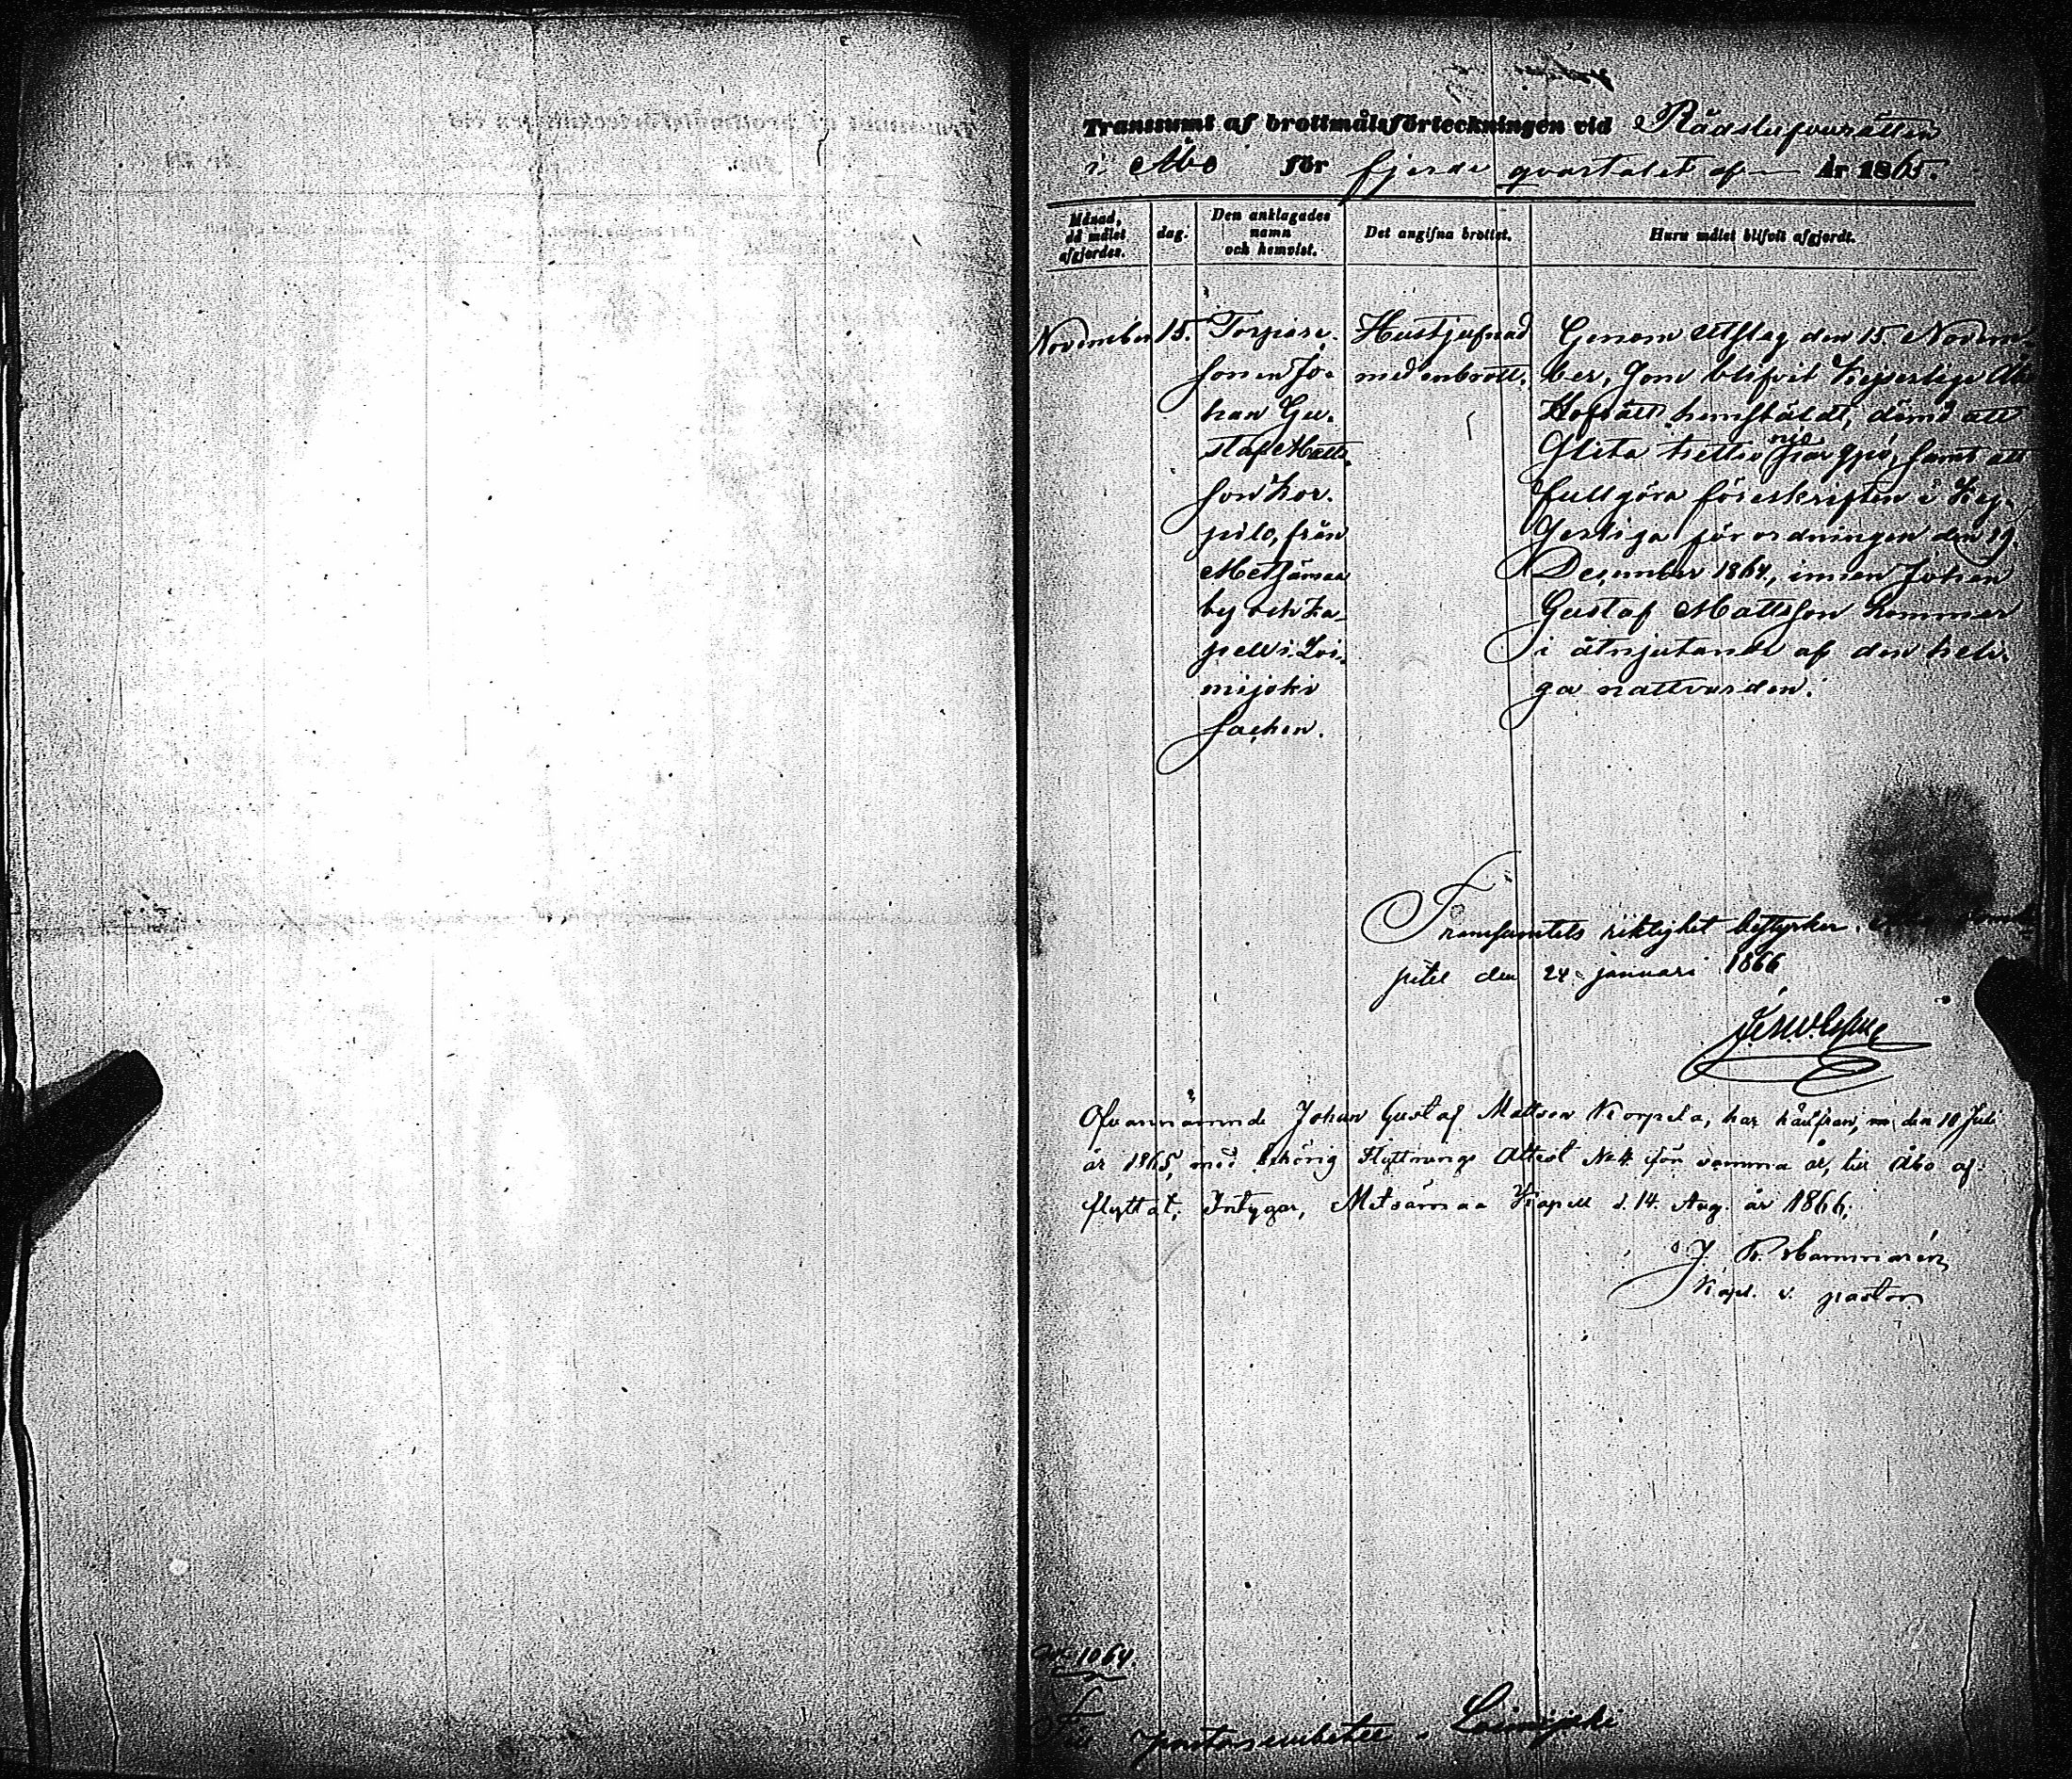 Transsumt af brottmålsförteckningen vid Rådstufvurätten
i Åbo för fjerde qvartalet af År 1865.
Månad,
då målet
afgjordes.
dag.
Den anklagades
namn
och hemvist.
Det angifna brottet.
Huru målet blifvit afgjordt.
November 15.
Torpare-
sonen Jo-
han Gu-
staf Matts-
son Kor-
pilo, från
Metsämaa
by och ka-
pell i Loi-
mijoki
socken.
Hustjufnad
med inbrott.
Genom utslag den 15. Novem-
ber, som blifvit Kejserlige Åbo
Hofrätt hemstäldt, dömd att
slita trettio nio par spö, samt att
fullgöra föreskriften i Kej-
serliga förordningen den 19.
December 1864, innan Johan
Gustaf Mattsson kommer
i åtnjutande af den heli-
ga nattvarden.
Transsumtets riktighet bestyrker.
den 24 januari 1866
Ofvannämnde Johan Gustaf Mattson Korpela, har härifrån, den 10 Juli
år 1865, med behörig Flyttnings Attest No 4 för samma år, till Åbo af-
flyttat; Intygar, Metsämaa Kapell d. 14. Aug. år 1866;
J. Hammarén
Kapl. v. pastor
1064.
Till pastorsembetet i Loimijoki